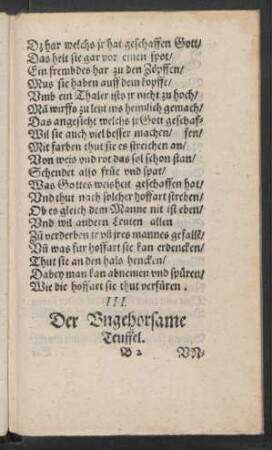 Dz har welchs jr hat geschaffen Gott/
Das helt sie gar vor einen spot/
Ein frembdes har zu den Zöpffen/
Mus sie haben auff dem kopffe/
Vmb ein Thaler ists jr nicht zu hoch/
Mā wirffs zu letzt ins heimlich gemach/
Das angesicht welchs jr Gott geschaf-
Wil sie auch viel besser machen/ fen/
Mit farben thut sie es streichen an/
Von weis vnd rot das sol schon stan/
Schendet also früe vnd spat/
Was Gottes weisheit geschaffen hat/
Vnd thut nach solcher hoffart streben/
Ob es gleich dem Manne nit ist eben/
Vnd wil andern Leuten allen
Zū verderben jr vñ jres mannes gefalle/
Vñ was fur hoffart sie kan erdencken/
Thut sie an den hals hencken/
Dabey man kan abnemen vnd spüren/
Wie die hoffart sie thut verfüren.
III.
Der Vngehorsame
Teuffel.
B 2 VN-